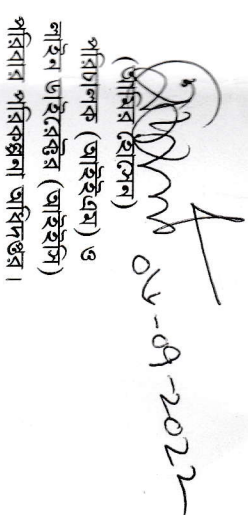 ০৮-০৭-২০২২
(আমির হোসেন)
পরিচালক (আইইএম) ও
লাইন ডাইরেক্টর (আইইসি)
পরিবার পরিকল্পনা অধিদপ্তর।